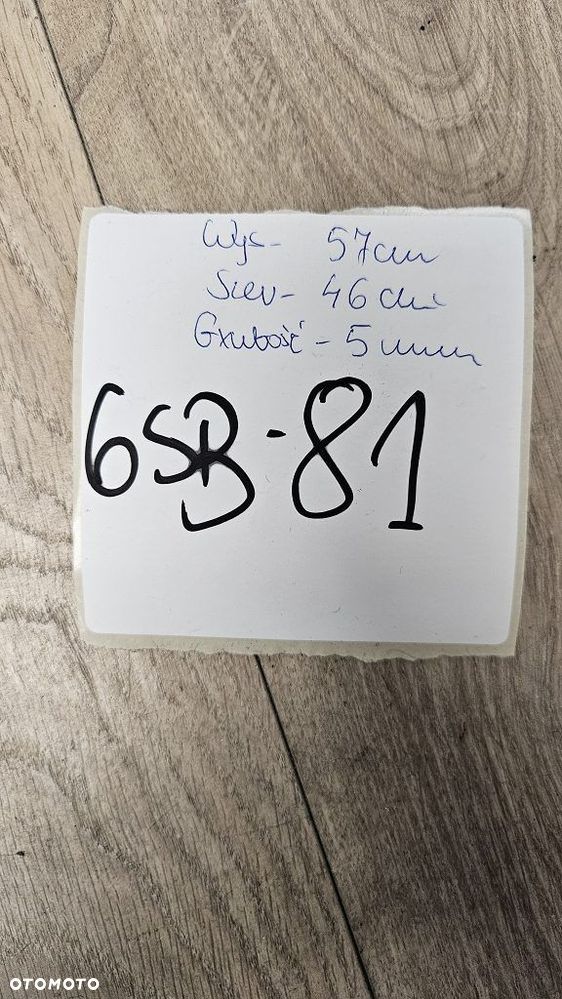 Wys- 57cm
Szer- 46cm
Grubość - 5mm
6SB-81
OTOMOTO